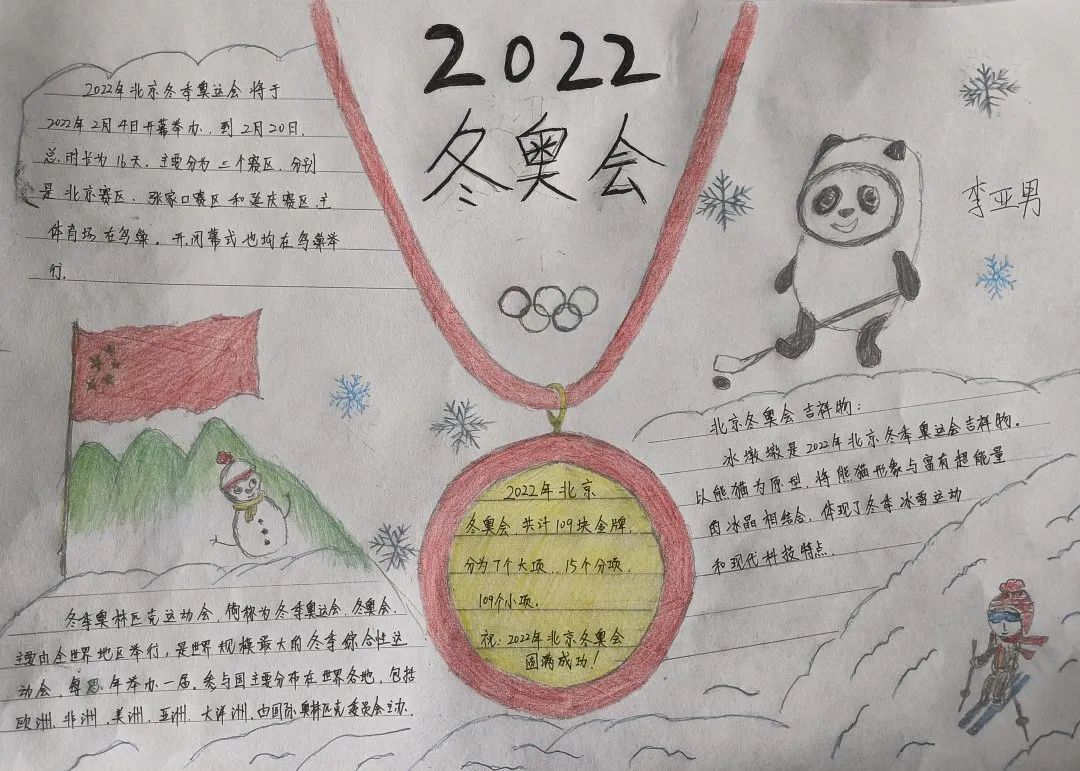 2022
冬奥会
李亚男
2022年北京冬季奥运会将于
2022年2月4日开幕举办,到2月20日,
总时长为16天,主要分为三个赛区,分别
是北京赛区、张家口赛区和延庆赛区,主
体育场在鸟巢,开闭幕式也均在鸟巢举
行.
北京冬奥会吉祥物:
冰墩墩是2022年北京冬季奥运会吉祥物,
以熊猫为原型,将熊猫形象与富有超能量
的冰晶相结合,体现了冬季冰雪运动
和现代科技特点.
2022年北京
冬奥会,共计109块金牌
分为7个大项,15个分项,
109个小项.
祝:2022年北京冬奥会
圆满成功!
冬季奥林匹克运动会,简称为冬季奥运会、冬奥会.
主要由全世界地区举行,是世界规模最大的冬季综合性运
动会,每四年举办一届.参与国主要分布在世界各地,包括
欧洲、非洲、美洲、亚洲、大洋洲.由国际奥林匹克委员会主办.